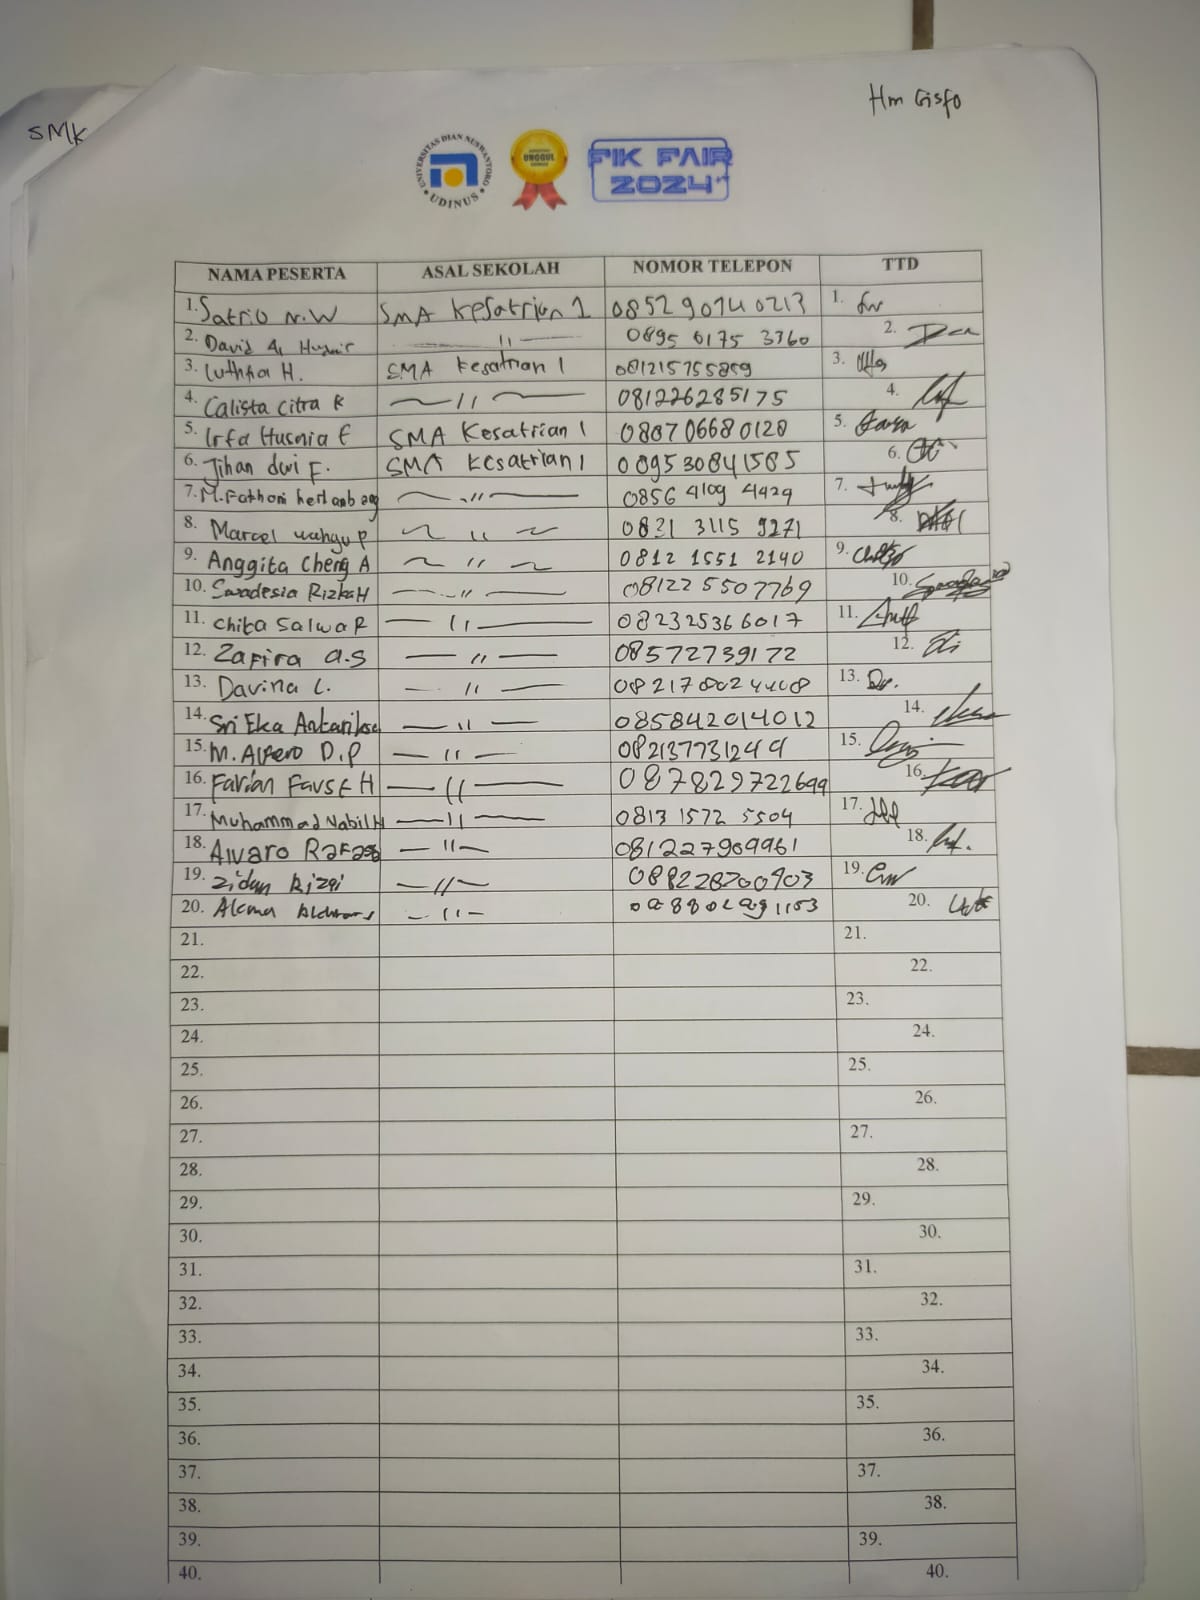 SMK
Hm Cisfo
UNIVERSITAS DIAN NUSWANTORO
UDINUS
UNGGUL
FIK FAIR
2024
NAMA PESERTA ASAL SEKOLAH NOMOR TELEPON TTD
1. Satrio N.W SMA Kesatrian 1 085290740213 1.
2. David A. 〃 0895 0175 3360 2.
3. Luthfia H. SMA Kesatrian 1 081215755859 3.
4. Calista Citra K 〃 081226285175 4.
5. Irfa Husnia F SMA Kesatrian 1 088706680120 5.
6. Jihan dwi F. SMA Kesatrian 1 089530841585 6.
7. M. Fathoni herlambang 〃 0856 4109 4429 7.
8. Marcel wahyu P 〃 0831 3115 9271 8.
9. Anggita Cheng A 〃 0812 1551 2140 9.
10. Swadesia Rizka H 〃 081225507769 10.
11. Chika Salwa R 〃 082325366017 11.
12. Zafira a.s 〃 08572739172 12.
13. Davina L. 〃 13.
14. Sri Eka 〃 085842014012 14.
15. M. Alfero D.P 〃 082137731249 15.
16. Farian Faust H 〃 087829722699 16.
17. Muhammad Nabil H 〃 0813 1572 5504 17.
18. Alvaro 〃 081227909961 18.
19. Zidan Rizqi 〃 088228200903 19.
20. 〃 20.
21. 21.
22. 22.
23. 23.
24. 24.
25. 25.
26. 26.
27. 27.
28. 28.
29. 29.
30. 30.
31. 31.
32. 32.
33. 33.
34. 34.
35. 35.
36. 36.
37. 37.
38. 38.
39. 39.
40. 40.